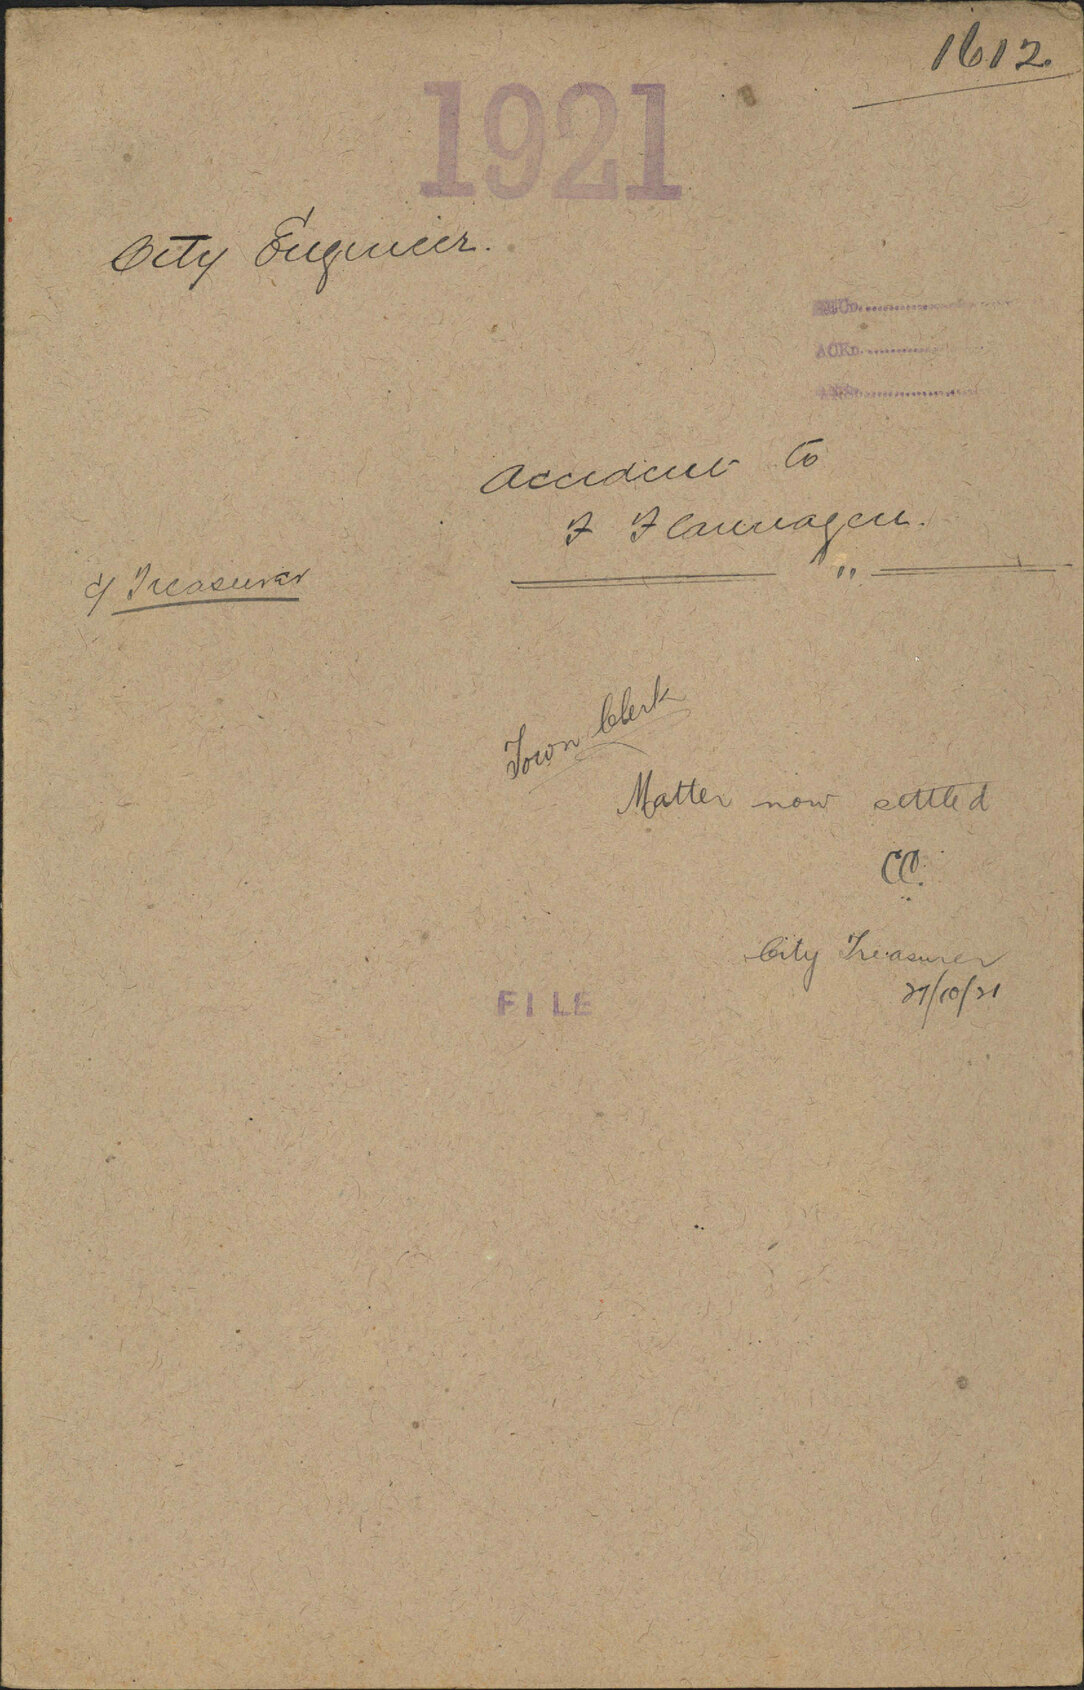 1612
1921
City Engineer.
RECD.
ACKD.
ANSD.
Accident to
F Flannagan.
C/ Treasurer
Town Clerk
Matter now settled
CC.
City Treasurer
27/10/21
FILE